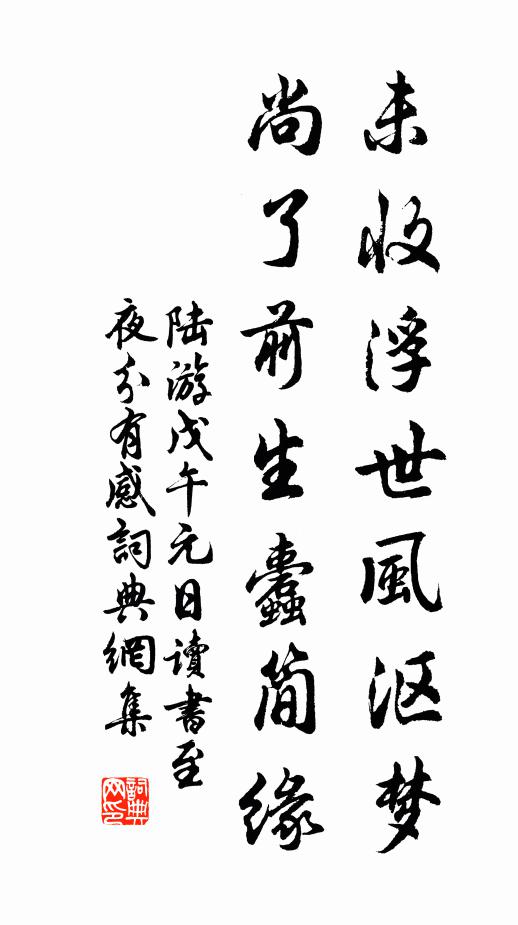 未收浮世風沤梦
尚了前生蠹简缘
陆游戊午元日讀書至
夜分有感詞典網集
詞典
网印